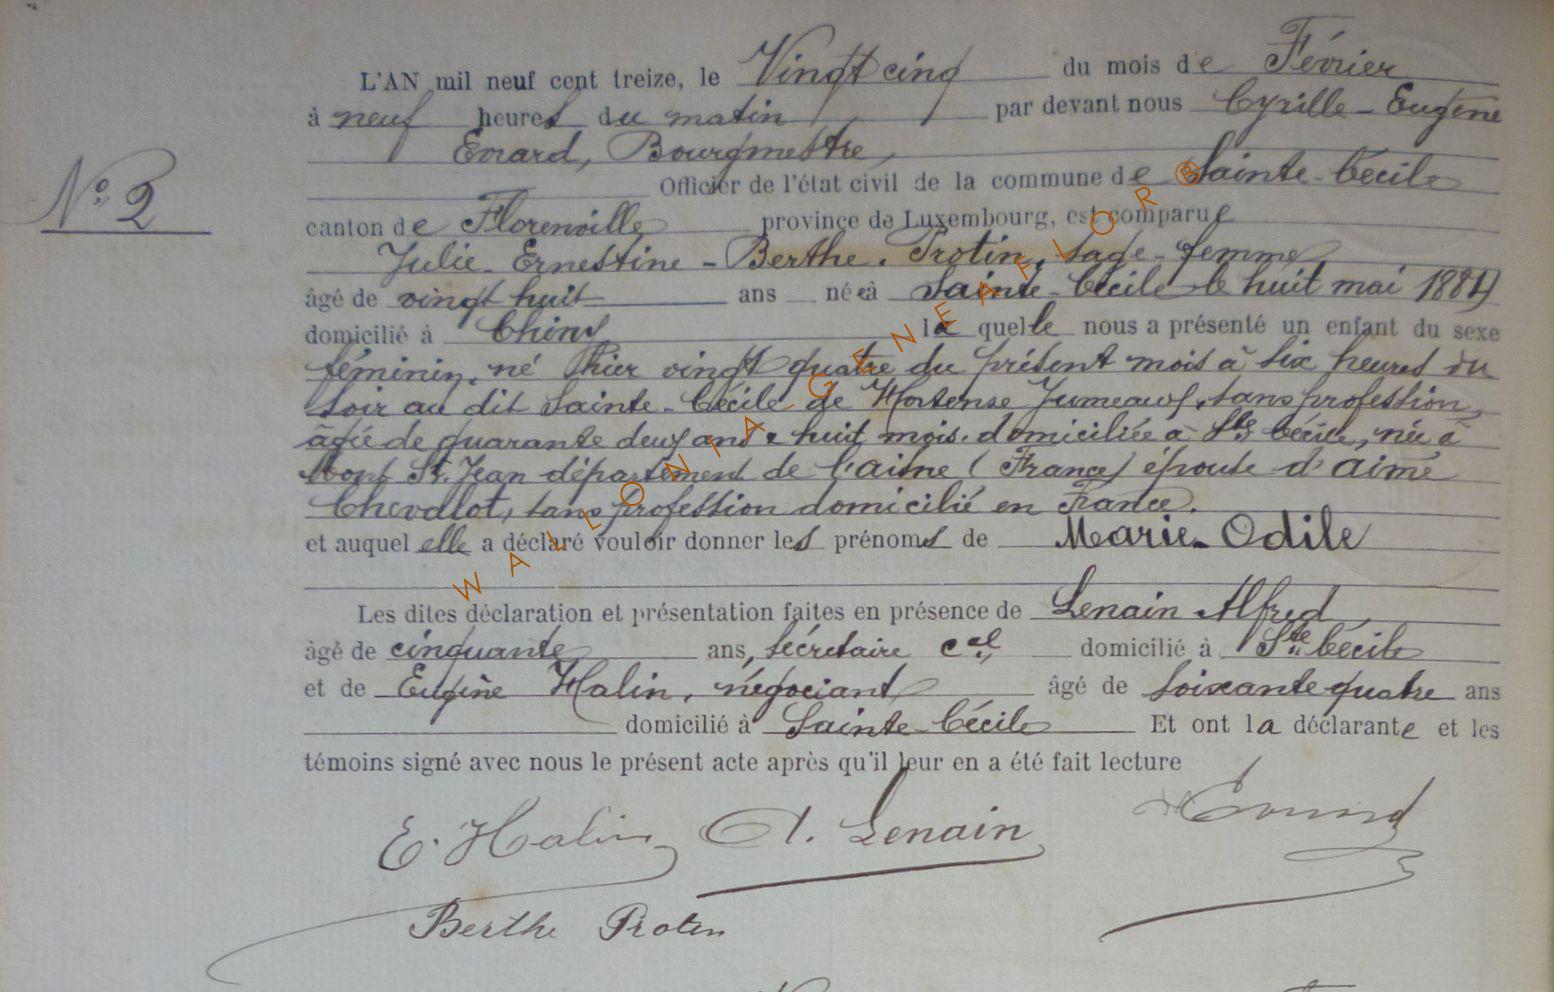 L'AN mil neuf cent treize, le Vingt cinq du mois de Février
à neuf heures du matin par devant nous Cyrille-Eugène
Evrard, Bourgmestre,
Officier de l'état civil de la commune de Sainte-Cécile
N° 2
canton de Florenville province de Luxembourg, est comparue
Julie-Ernestine-Berthe Protin, sage-femme
âgé de vingt huit ans née à Sainte-Cécile le huit mai 1884
domicilié à Chiny la quelle nous a présenté un enfant du sexe
féminin, né hier vingt quatre du présent mois à six heures du
soir au dit Sainte-Cécile de Hortense Jumeaux, sans profession,
âgée de quarante deux ans & huit mois, domiciliée à Ste Cécile, née à
Mont St. Jean département de l'aisne (France) épouse d'aimé
Chevallot, sans profession domicilié en France.
et auquel elle a déclaré vouloir donner les prénoms de Marie-Odile
Les dites déclaration et présentation faites en présence de Lenain Alfred
âgé de cinquante ans, secrétaire cal domicilié à Ste Cécile
et de Eugène Halin, négociant âgé de soixante quatre ans
domicilié à Sainte-Cécile Et ont la déclarante et les
témoins signé avec nous le présent acte après qu'il leur en a été fait lecture
E. Halin A. Lenain Evrard
Berthe Protin
WALLONIA-GENEAFLOR®